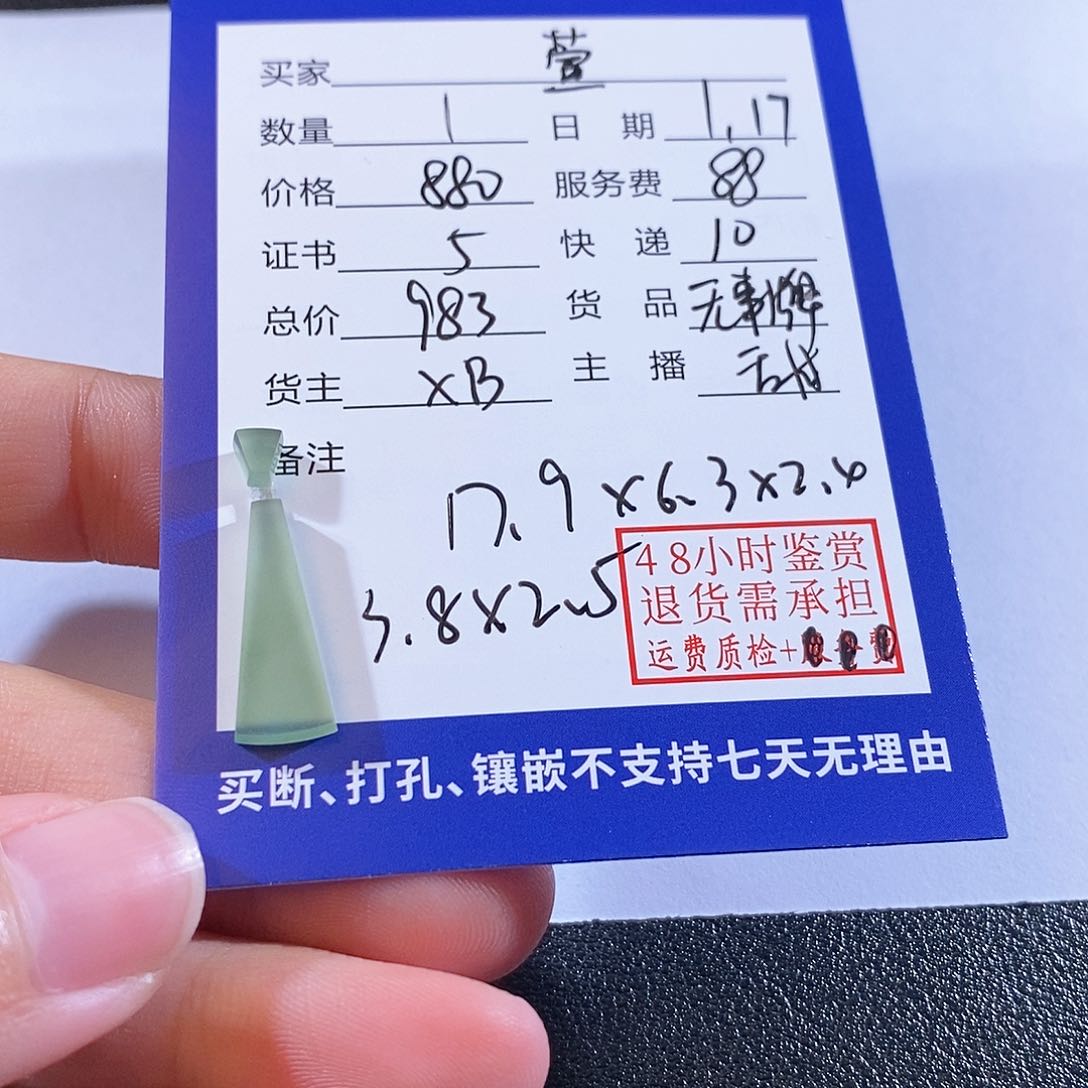 买家 萱
数量 1 日期 1.17
价格 880 服务费 88
证书 5 快递 10
总价 983 货品 无事牌
货主 XB 主播
备注
17.9×6.3×2.4
3.8×2.5
48小时鉴赏
退货需承担
运费质检+
买断、打孔、镶嵌不支持七天无理由